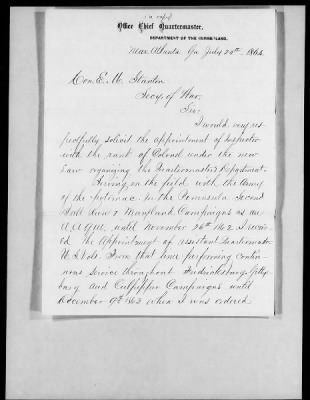 (a copy)
Office Chief Quartermaster,
DEPARTMENT OF THE CUMBERLAND,
Near Atlanta Ga July 24th 1864
Hon. E. M. Stanton
Secy. of War.
Sir:
I would very res-
pectfully solicit the appointment of Inspector
with the rank of Colonel under the new
Law organizing the Quartermaster's Department.
Serving in the field with the Army
of the potomac in the Peninsula Second
Bull Run & Maryland Campaigns as an
until November 26th 1862 I receiv-
ed the Appointment of assistant Quartermaster
U.S. Vols. From that time performing Contin-
uous Service throughout Fredericksburg Gettys-
burg and Culpepper Campaigns until
December 9th 1863 when I was ordered